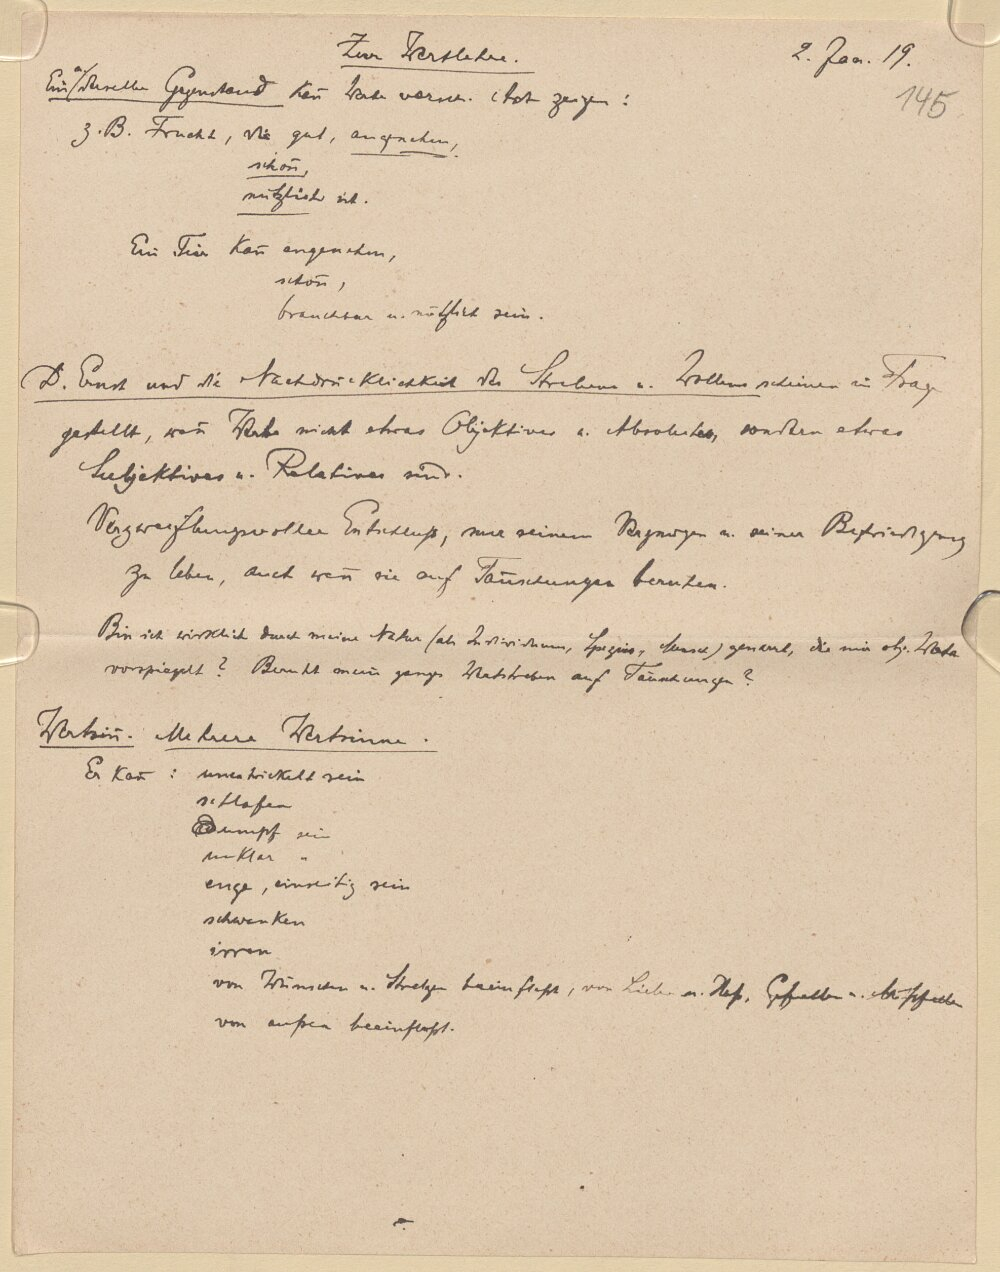 Zur Wertlehre.
2. Jan. 19.
145
Ein u. derselbe Gegenstand kañ Werte versch. Art zeigen:
z. B. Frucht, die gut, angenehm,
schön,
nützlich ist.
Ein Tier kañ angenehm,
schön,
brauchbar u. nützlich sein.
D. Ernst und die Nachdrücklichkeit des Strebens u. Wollens scheinen in Frage
gestellt, wañ Werte nicht etwas Objektives u. Absolutes, sondern etwas
Subjektives u. Relatives sind.
Verzweiflungsvoller Entschluß, nur seinem Vergnügen u. seiner Befriedigung
zu leben, auch wañ sie auf Täuschungen beruhen.
Bin ich wirklich durch meine Natur (als Individuum, Spezies, Mensch) genarrt, die mir obj. Werte
vorspiegelt? Beruht mein ganzes Wertstreben auf Täuschungen?
Wertsiñ. Mehrere Wertsinne.
Er kañ: unentwickelt sein
schlafen
dumpf sein
unklar "
enge, einseitig sein
schwanken
irren
von Wünschen u. Streben beeinflußt, von Liebe u. Haß, Gefallen u. Mißfallen
von außen beeinflußt.